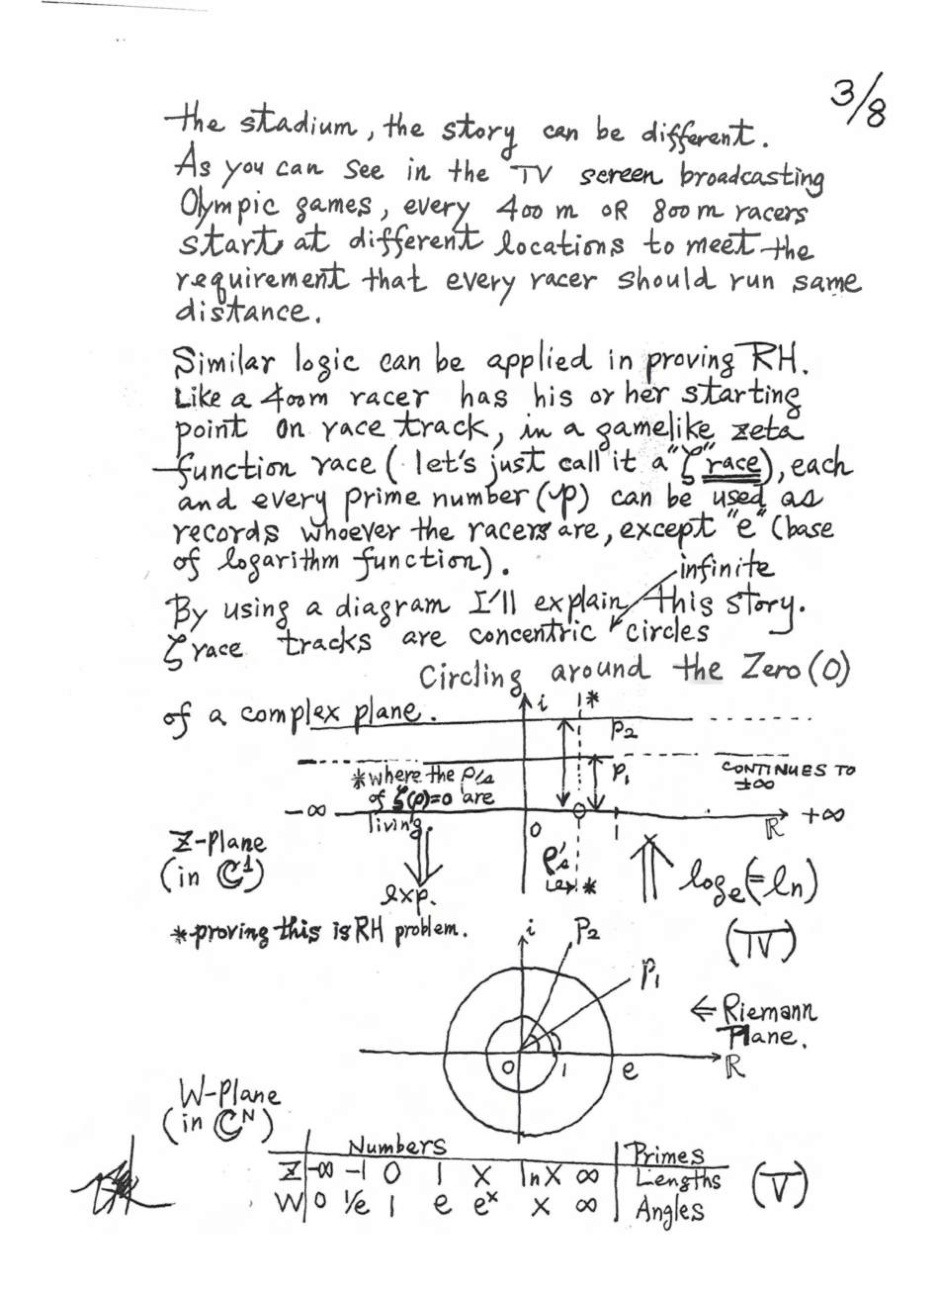 3/8
the stadium, the story can be different.
As you can see in the TV screen broadcasting
Olympic games, every 400 m OR 800 m racers
start at different locations to meet the
requirement that every racer should run same
distance.
Similar logic can be applied in proving RH.
Like a 400m racer has his or her starting
point on race track, in a gamelike zeta
function race (let's just call it a "ζ race"), each
and every prime number (p) can be used as
records whoever the racers are, except "e" (base
of logarithm function).
infinite
By using a diagram I'll explain this story.
ζ race tracks are concentric circles
Circling around the Zero (0)
of a complex plane.
i
*
P2
*where the ρ's
of ζ(ρ)=0 are
living.
P1
CONTINUES TO
±∞
-∞
0
1
R
+∞
Z-Plane
(in ℂ¹)
exp.
ρ's
*
logₑ(=ln)
*proving this is RH problem.
(IV)
i
P2
P1
⇐ Riemann
Plane.
0
1
e
R
W-Plane
(in ℂᴺ)
Numbers
Primes
Z -∞ -1 0 1 X lnX ∞ Lengths
W 0 1/e 1 e eˣ X ∞ Angles
(V)